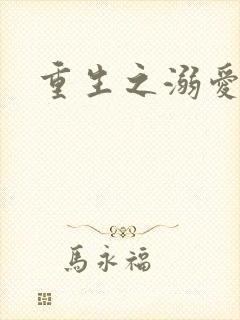 重生之溺愛
馬永福